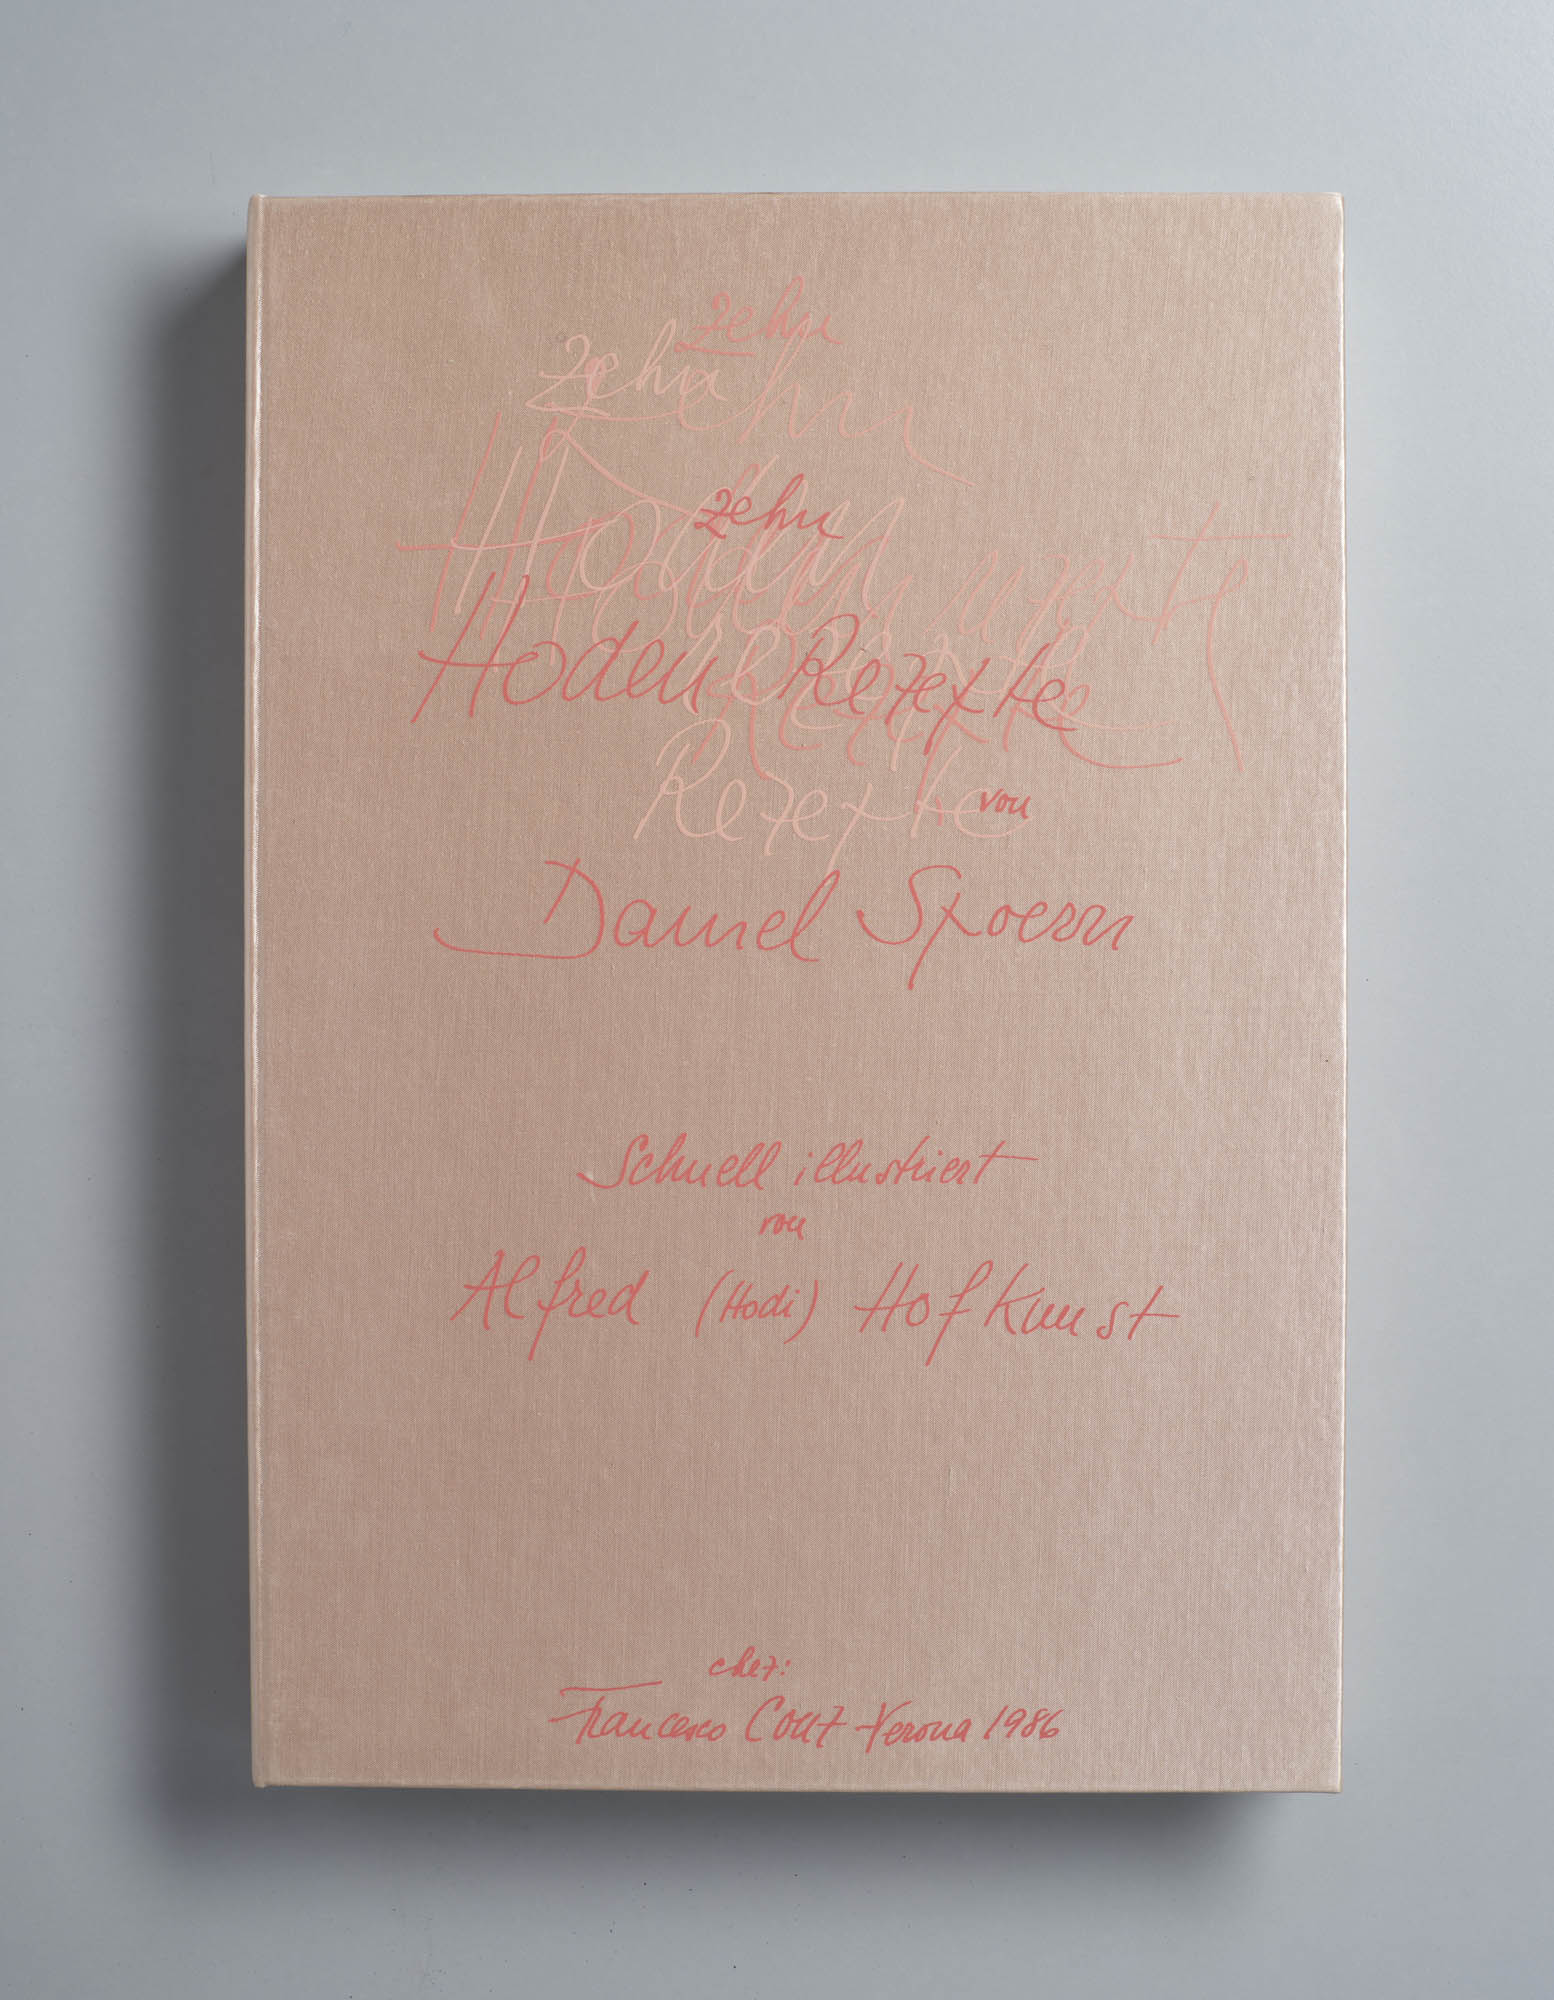 zehn
zehn
zehn
Hoden
zehn
Hoden Rezepte
Hoden Rezepte
Rezepte
von
Daniel Spoerri
Schnell illustriert
von
Alfred (Hodi) Hofkunst
chez:
Francesco Conz Verona 1986